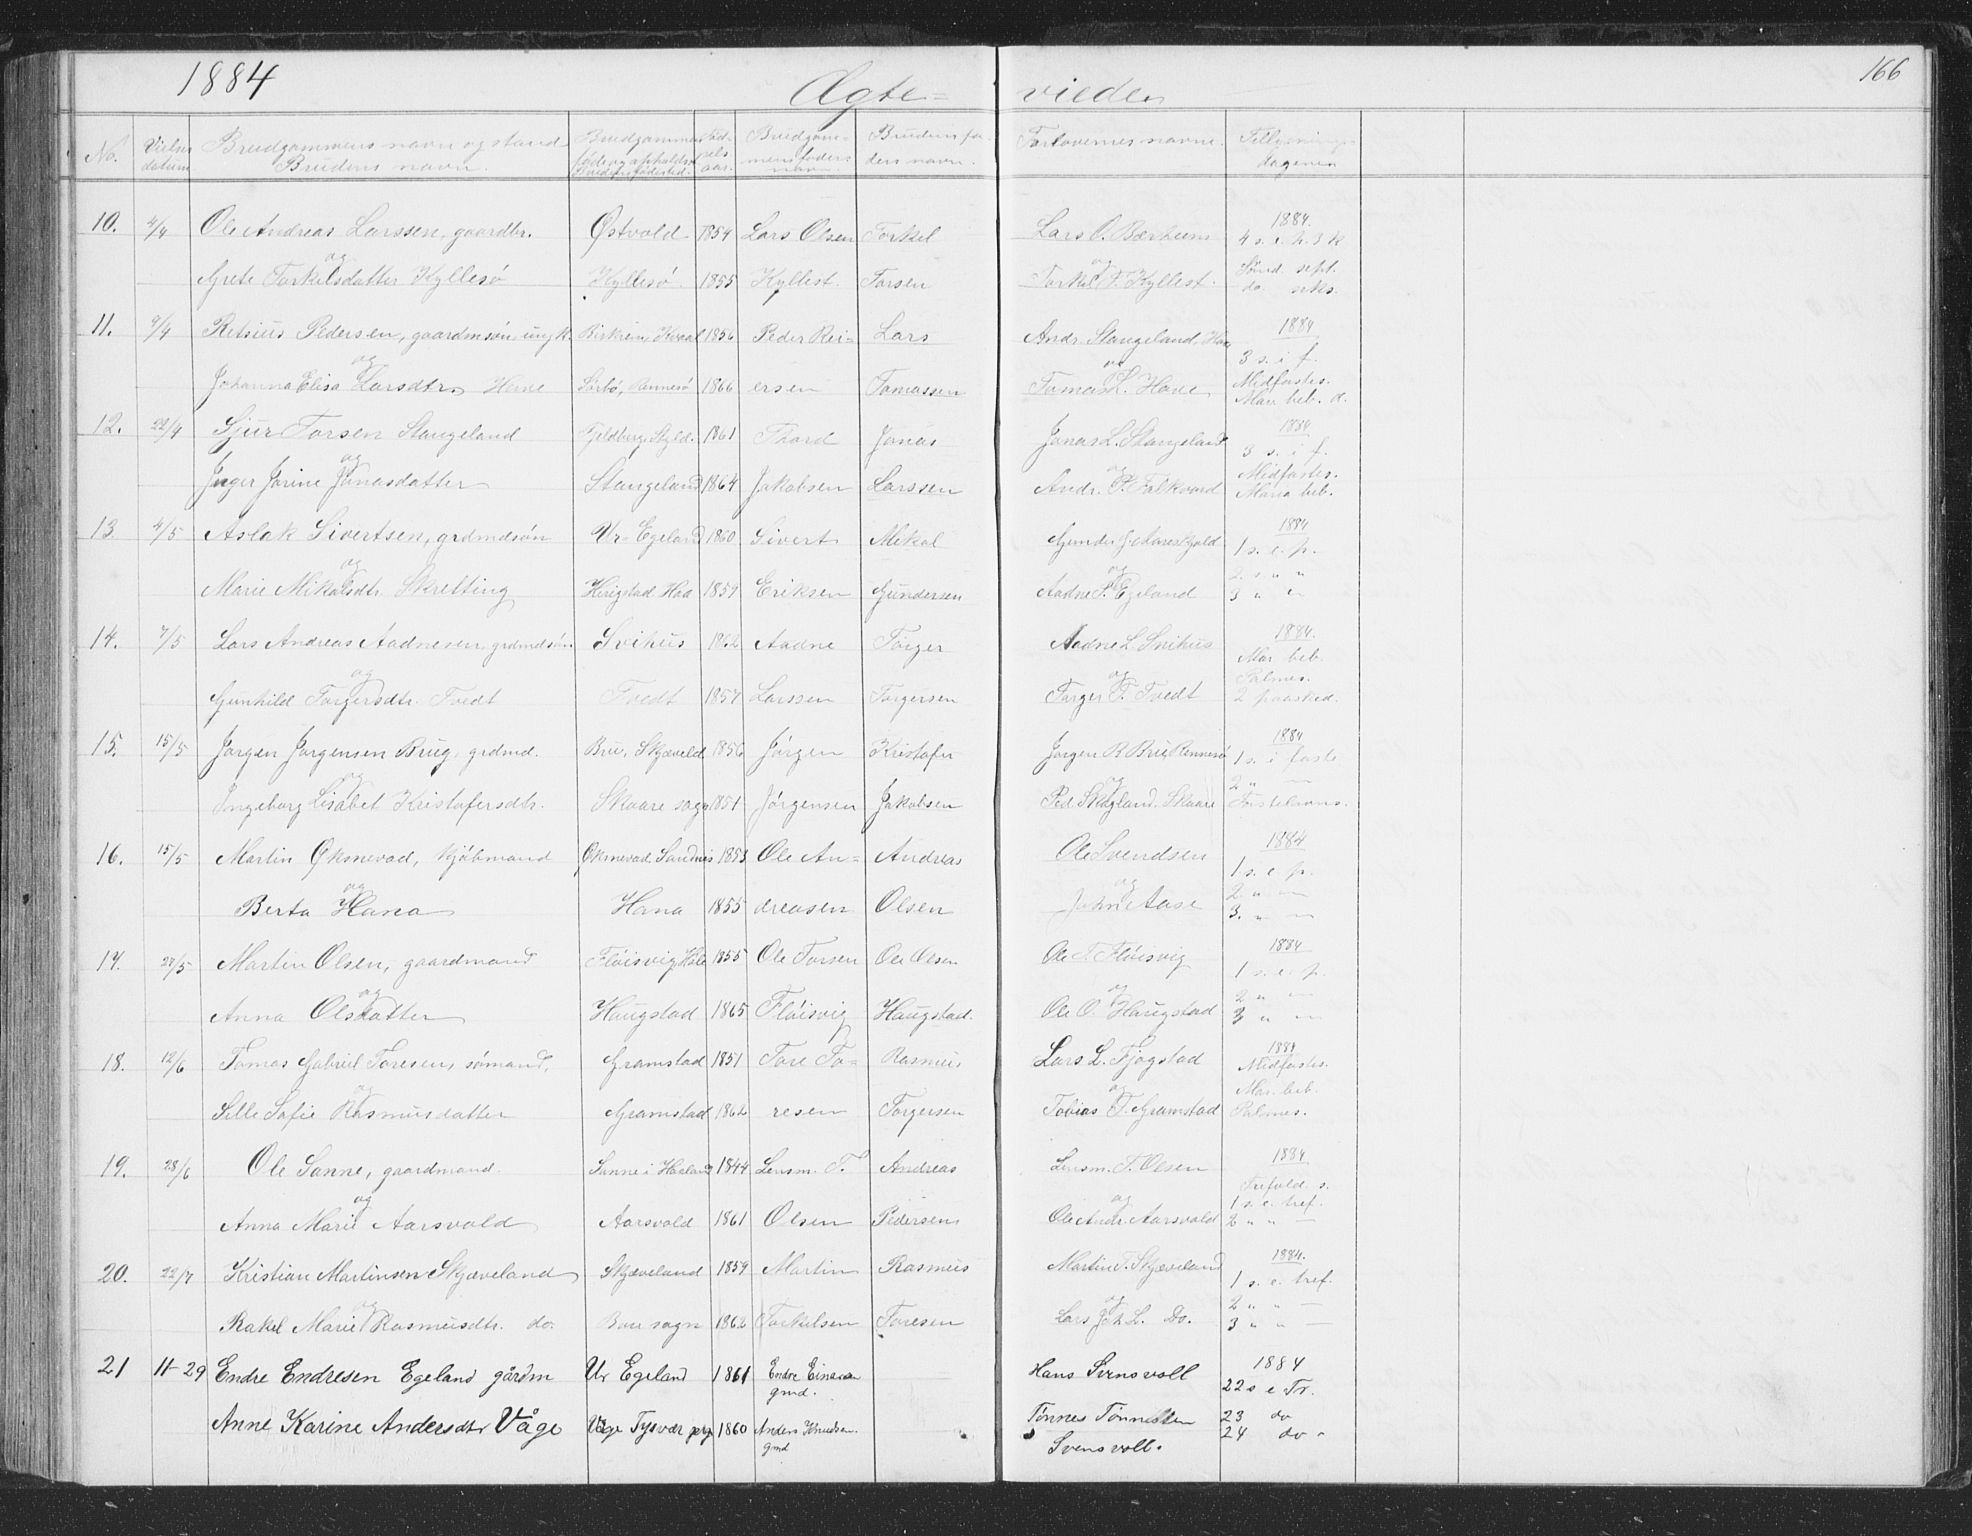 1884
Ægte- viede
166
No. Vielses datum Brudgommens navn og stand Brudens navn. Brudgommens føde og opholdst Brudens fødested. Fød- sels aar. Brudgom- mens faders navn. Brudens fa- ders navn. Forlovernes navne. Tillysnings- dagene
10. 4/4 Ole Andreas Larssen, gaardbr. Østvold 1854 Lars Olsen Torkel Lars O. Bærheim 1884. 4 s. e. h. 3 k
og
Grete Torkelsdatter Kyllesø Kyllesø 1855 Kyllest. Torsen Torkel T. Kyllest. Sønd. sept. do. seks.
11. 9/4 Retsius Pedersen, gaardmsøn, ungk. Birkrem, 1856 Peder Rei- Lars Andr. Stangeland, 1884 3 s. i f.
og
Johanna Elisa Larsdtr Hove Sørbø, Rennesø 1866 ersen Tomassen Tomas L. Hove Midfastes. Mari beb. d.
12. 22/4 Sjur Torsen Stangeland Fjeldberg, 1861 Thord Jonas Jonas L. Stangeland 1884 3 s. i f.
og
Inger Jorine Jonasdatter Stangeland 1864 Jakobsen Larssen Andr. P. Folkvord Midfastes. Maria beb.
13. 4/5 Aslak Sivertsen, grdmdsøn Ur-Egeland 1860 Sivert Mikal 1884 1 s. e. p.
og
Marie Mikalsdtr. Skretting Haa 1859 Eriksen Gundersen Aadne F. Egeland 2 s " " 3 " "
14. 7/5 Lars Andreas Aadnesen, grdmdsøn. Svihus 1862 Aadne Torger Aadne L. Svihus 1884. Mar. beb.
og
Gunhild Torgersdtr. Tvedt Tvedt 1857 Larssen Torgersen Torger T. Tvedt Palmes. 2 paasked.
15. 15/5 Jørgen Jørgensen Brug, grdmd. Bru, Skjæveld 1856 Jørgen Kristofer Jørgen R Bru Rennesø 1884 1 s. i faste
og
Ingeborg Lisabet Kristofersdtr. Skaare sogn 1851 Jørgensen Jakobsen Ped Skogland. Skaare 2 " —
16. 15/5 Martin Øksnevad, kjøbmand Øksnevad Sandnes 1853 Ole An- Andreas Ole Svendsen 1884 1 s. e. p.
og
Berta Hana Hana 1855 dreasen Olsen John Aase 2 " — 3. " —
17. 27/5 Martin Olsen, gaardmand Fløisvig, Høle 1855 Ole Torsen Ole Olsen Ole T. Fløisvig 1884 1 s. e. p.
og
Anna Olsdatter Haugstad 1865 Fløisvig Haugstad. Ole O. Haugstad 2 " — 3 " —
18. 12/6 Tomas Gabriel Toresen, sømand, Gramstad 1851 Tore To- Rasmus Lars L. Fjogstad 1884 Midfastes.
og
Sille Sofie Rasmusdatter Gramstad 1862 resen Torgersen Tobias T. Gramstad Mar. beb. Palmes.
19. 28/6 Ole Sanne, gaardmand. Sanne i Haaland 1844 Lensm. T. Andreas Lensm. T. Olsen 1884 Trefold. s.
og
Anna Marie Aarsvold Aarsvold 1861 Olsen Pedersen Ole Andr. Aarsvold 1 s. e. tref. 2 " " —
20. 22/7 Kristian Martinsen Skjæveland Skjæveland 1859 Martin Rasmus Martin T. Skjæveland 1884. 1 s. e. tref.
og
Rakel Marie Rasmusdtr. do. Bore sogn 1862 Torkelsen Toresen Lars L. Do. 2 " " — 3 " " —
21 11-29 Endre Endresen Egeland gårdm Ur Egeland 1861 Endre gmd. Hans Svensvoll 1884 22 s e Tr.
Anne Karine Andersdtr Våge Våge Tysvær prg 1860 Anders Knudsen gmd Tønnes Tønnessen Svensvoll. 23 do 24 do